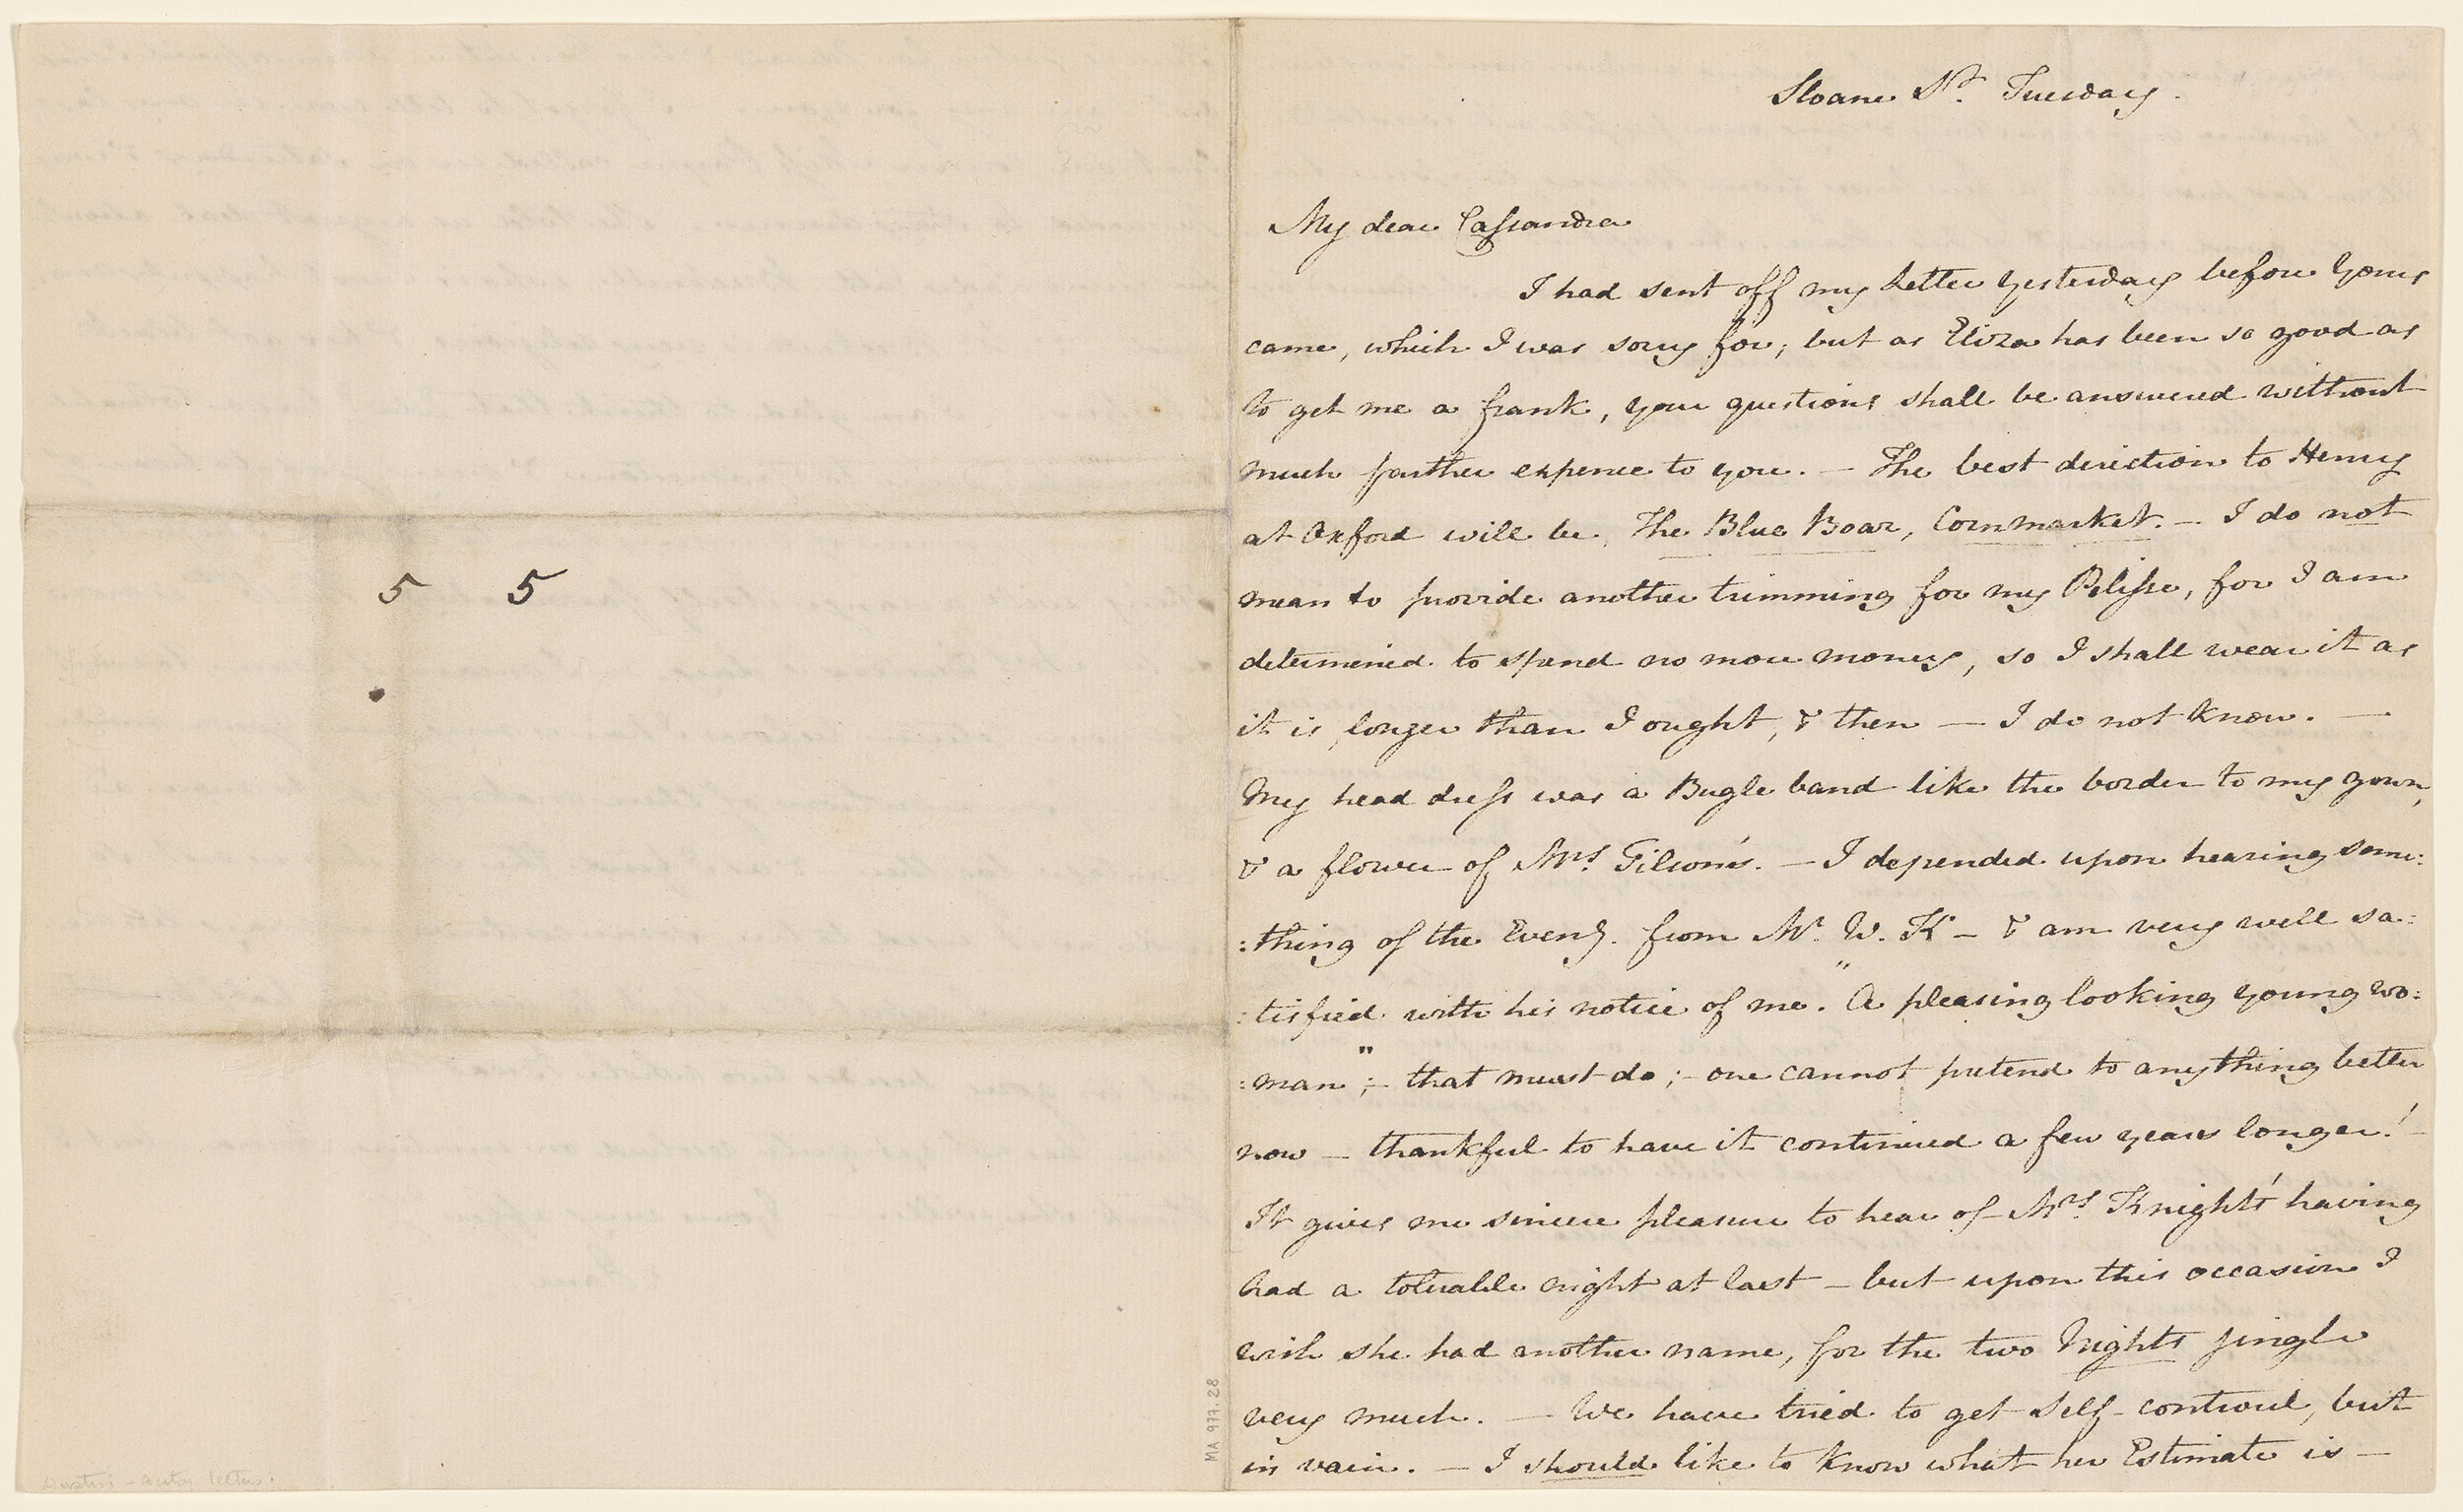 5 5
Austen - autog. letters.
MA 977.28
Sloane St. Tuesday.
My dear Cassandra
I had sent off my Letter yesterday before Yours
came, which I was sorry for; but as Eliza has been so good as
to get me a frank, your questions shall be answered without
much farther expence to you. – The best direction to Henry
at Oxford will be, The Blue Boar, Cornmarket. – I do not
mean to provide another trimming for my Pelisse, for I am
determined to spend no more money, so I shall wear it as
it is, longer than I ought, & then – I do not know. –
My head dress was a Bugle band like the border to my gown,
& a flower of Mrs. Tilson's. – I depended upon hearing some:
:thing of the Eveng. from Mr. W. K – & am very well sa:
:tisfied with his notice of me. "A pleasing looking young wo:
:man"; – that must do; – one cannot pretend to anything better
now – thankful to have it continued a few years longer! –
It gives me sincere pleasure to hear of Mrs. Knight's having
had a tolerable night at last – but upon this occasion I
wish she had another name, for the two Nights jingle
very much. – We have tried to get Self-controul, but
in vain. – I should like to know what her Estimate is –